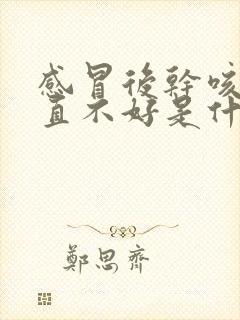 感冒後幹咳
直不好是什
鄭思齊